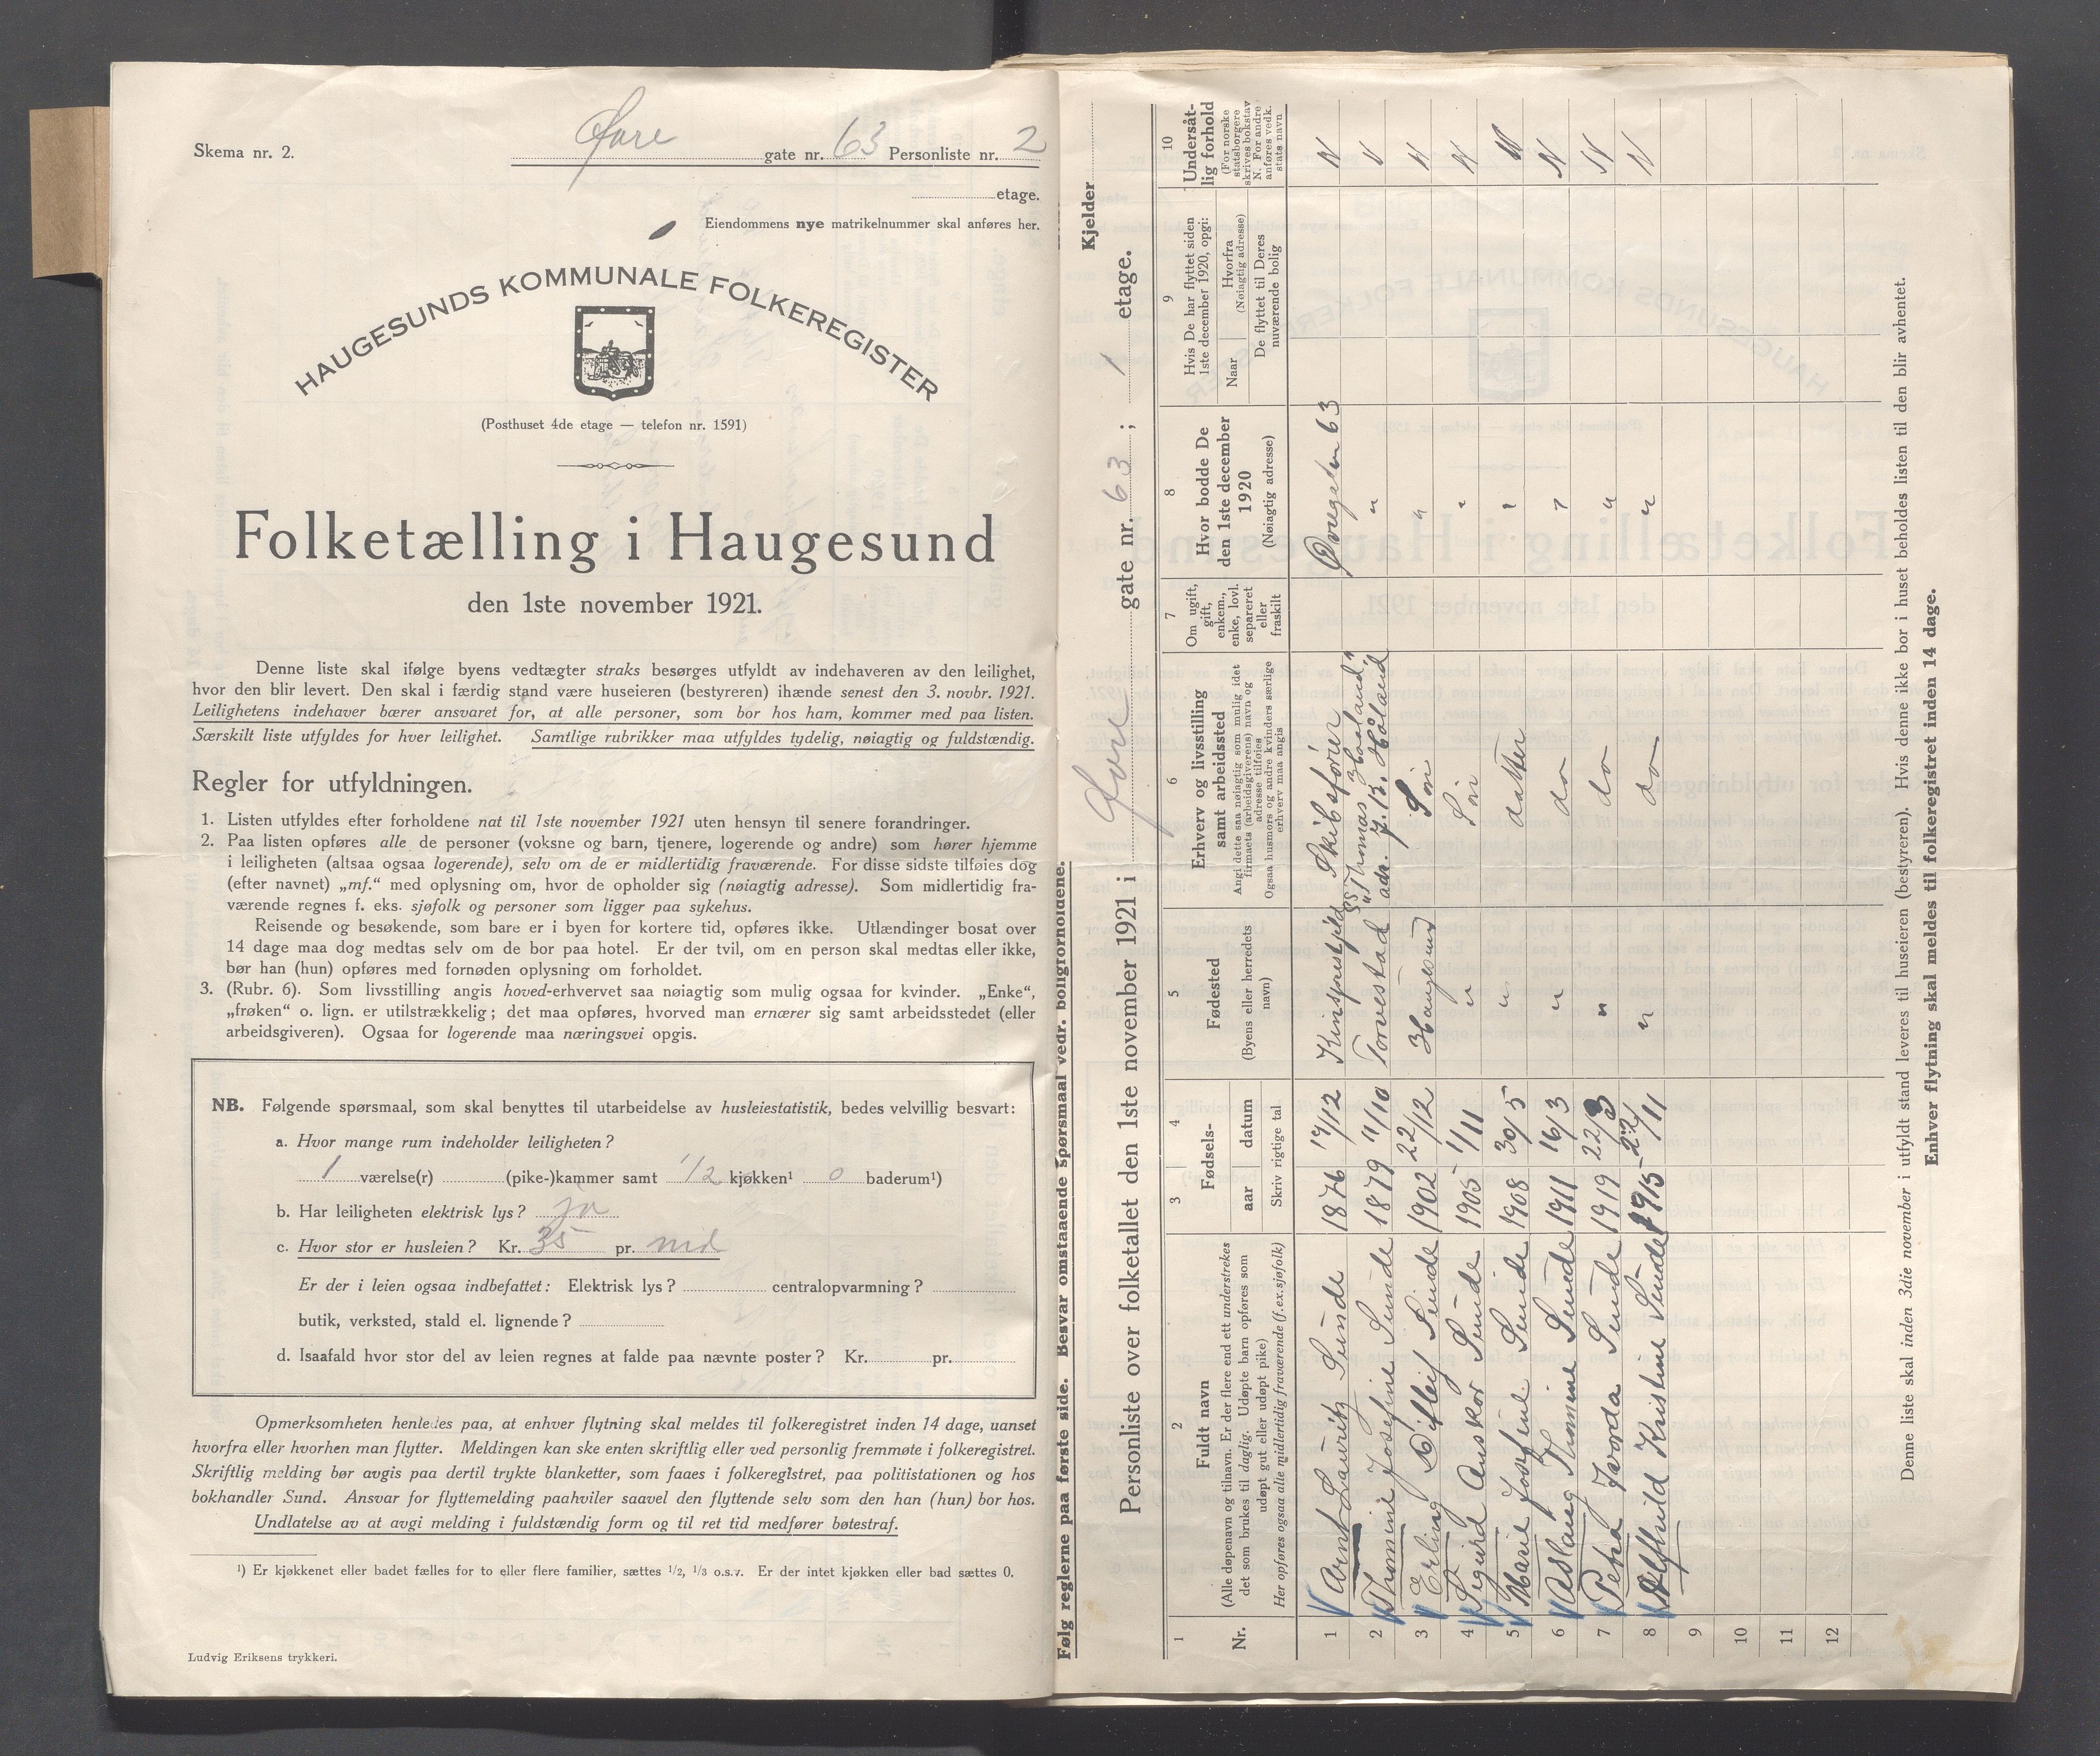 Skema nr. 2.
Øvre gate nr. 63 Personliste nr. 2
etage.
Eiendommens nye matrikelnummer skal anføres her.
HAUGESUNDS KOMMUNALE FOLKEREGISTER
(Posthuset 4de etage — telefon nr. 1591)
Folketælling i Haugesund
den 1ste november 1921.
Denne liste skal ifølge byens vedtægter straks besørges utfyldt av indehaveren av den leilighet,
hvor den blir levert. Den skal i færdig stand være huseieren (bestyreren) ihænde senest den 3. novbr. 1921.
Leilighetens indehaver bærer ansvaret for, at alle personer, som bor hos ham, kommer med paa listen.
Særskilt liste utfyldes for hver leilighet. Samtlige rubrikker maa utfyldes tydelig, nøiagtig og fuldstændig.
Regler for utfyldningen.
1. Listen utfyldes efter forholdene nat til 1ste november 1921 uten hensyn til senere forandringer.
2. Paa listen opføres alle de personer (voksne og barn, tjenere, logerende og andre) som hører hjemme
i leiligheten (altsaa ogsaa logerende), selv om de er midlertidig fraværende. For disse sidste tilføies dog
(efter navnet) „mf.“ med oplysning om, hvor de opholder sig (nøiagtig adresse). Som midlertidig fra-
værende regnes f. eks. sjøfolk og personer som ligger paa sykehus.
Reisende og besøkende, som bare er i byen for kortere tid, opføres ikke. Utlændinger bosat over
14 dage maa dog medtas selv om de bor paa hotel. Er der tvil, om en person skal medtas eller ikke,
bør han (hun) opføres med fornøden oplysning om forholdet.
3. (Rubr. 6). Som livsstilling angis hoved-erhvervet saa nøiagtig som mulig ogsaa for kvinder. „Enke“,
„frøken“ o. lign. er utilstrækkelig; det maa opføres, hvorved man ernærer sig samt arbeidsstedet (eller
arbeidsgiveren). Ogsaa for logerende maa næringsvei opgis.
NB. Følgende spørsmaal, som skal benyttes til utarbeidelse av husleiestatistik, bedes velvillig besvart:
a. Hvor mange rum indeholder leiligheten?
1 værelse(r) (pike-)kammer samt 1/2 kjøkken¹ 0 baderum¹)
b. Har leiligheten elektrisk lys? ja
c. Hvor stor er husleien? Kr. 35 pr. md
Er der i leien ogsaa indbefattet: Elektrisk lys? centralopvarmning?
butik, verksted, stald el. lignende?
d. Isaafald hvor stor del av leien regnes at falde paa nævnte poster? Kr. pr.
Opmerksomheten henledes paa, at enhver flytning skal meldes til folkeregistret inden 14 dage, uanset
hvorfra eller hvorhen man flytter. Meldingen kan ske enten skriftlig eller ved personlig fremmøte i folkeregistret.
Skriftlig melding bør avgis paa dertil trykte blanketter, som faaes i folkeregistret, paa politistationen og hos
bokhandler Sund. Ansvar for flyttemelding paahviler saavel den flyttende selv som den han (hun) bor hos.
Undlatelse av at avgi melding i fuldstændig form og til ret tid medfører bøtestraf.
¹) Er kjøkkenet eller badet fælles for to eller flere familier, sættes 1/2, 1/3 o.s.v. Er der intet kjøkken eller bad sættes 0.
Ludvig Eriksens trykkeri.
Følg reglerne paa første side. Besvar omstaaende spørsmaal vedr. boligforholdene.
Kjelder
Personliste over folketallet den 1ste november 1921 i Øvre gate nr. 63; 1 etage.
1 2 3 4 5 6 7 8 9 10
Nr.
Fuldt navn
(Alle døpenavn og tilnavn. Er der flere end ett understrekes
det som brukes til daglig. Udøpte barn opføres som
udøpt gut eller udøpt pike)
Her opføres ogsaa alle midlertidig fraværende (f.ex. sjøfolk)
Fødsels-
aar datum
Skriv rigtige tal
Fødested
(Byens eller herredets
navn)
Erhverv og livsstilling
samt arbeidssted
Angi dette saa nøiagtig som mulig idet
firmaets (arbeidsgiverens) navn og
adresse tilføies
Ogsaa husmors og andre kvinders særlige
erhverv maa angis
Om ugift,
gift,
enkem.,
enke, lovl.
separeret
eller
fraskilt
Hvor bodde De
den 1ste december
1920
(Nøiagtig adresse)
Hvis De har flyttet siden
1ste december 1920, opgi:
Naar
Hvorfra
(Nøiagtig adresse)
De flyttet til Deres
nuværende bolig
Undersåt-
lig forhold
(For norske
statsborgere
skrives bokstav
N. For andre
anføres vedk.
stats navn
1 Arnt Lauritz Sunde 1876 17/12 Skibsfører Øvregaten 63 N
SS „Thomas Haaland“
2 Thomine Josefine Sunde 1879 11/10 Torvestad adr. J. B. Håland " N
3 Erling Sunde 1902 22/12 Haugesund Søn " N
4 Sigurd Anskar Sunde 1905 1/11 " Søn " N
5 Marie Josefine Sunde 1908 30/5 " datter " N
6 Aslaug Thomine Sunde 1911 16/3 " do " N
7 Petra Sunde 1919 22/3 " do " N
8 Alfhild Kristine Sunde 1915 22/11 " do " N
9
10
11
12
Denne liste skal inden 3die november i utfyldt stand leveres til huseieren (bestyreren). Hvis denne ikke bor i huset beholdes listen til den blir avhentet.
Enhver flytning skal meldes til folkeregistret inden 14 dage.